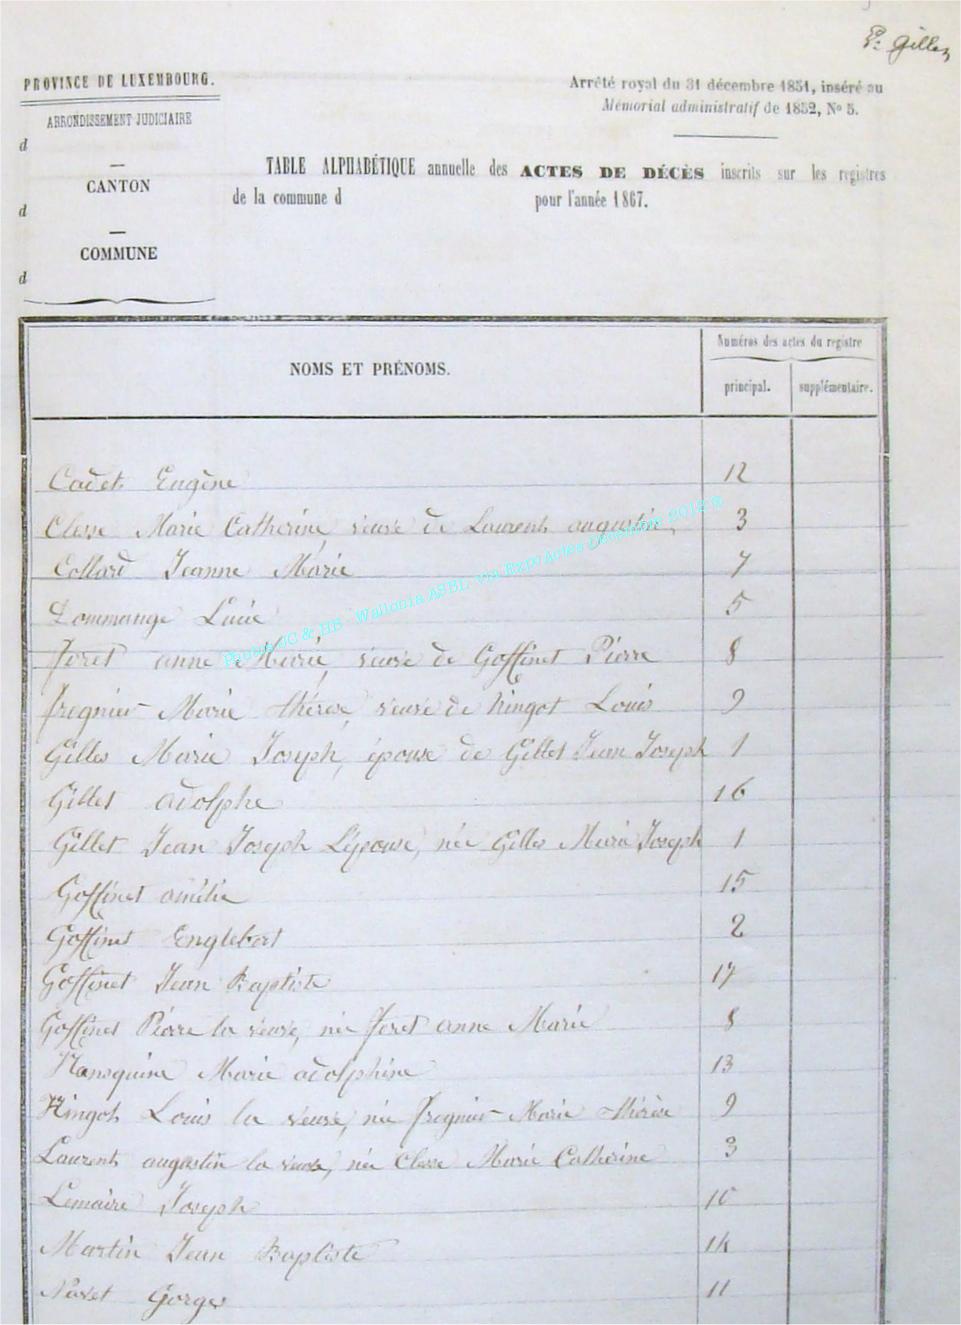 P. Gilles
PROVINCE DE LUXEMBOURG.
ARRONDISSEMENT JUDICIAIRE
d
CANTON
d
COMMUNE
d
Arrêté royal du 31 décembre 1851, inséré au
Mémorial administratif de 1852, No 5.
TABLE ALPHABÉTIQUE annuelle des ACTES DE DÉCÈS inscrits sur les registres
de la commune d pour l'année 1867.
NOMS ET PRÉNOMS.
Numéros des actes du registre
principal. supplémentaire.
Cadet Eugène 12
Clesse Marie Catherine, veuve de Laurent augustin, 3
Collard Jeanne Marie 7
Dommange Lucie 5
foret anne Marie, veuve de Goffinet Pierre 8
fregnier Marie thérèse, veuve de hingot Louis 9
Gilles Marie Joseph, épouse de Gillet Jean Joseph 1
Gillet adolphe 16
Gillet Jean Joseph l'épouse, née Gilles Marie Joseph 1
Goffinet amélie 15
Goffinet Englebert 2
Goffinet Jean Baptiste 17
Goffinet Pierre la veuve, née foret anne Marie 8
Hansquine Marie adolphine 13
Hingot Louis la veuve, née fregnier Marie thérèse 9
Laurent augustin la veuve, née Clesse Marie Catherine 3
Lemaire Joseph 10
Martin Jean Baptiste 14
Navet Gorges 11
Photos JC & HB - Wallonia ASBL via Expo Actes Décembre 2012 ®